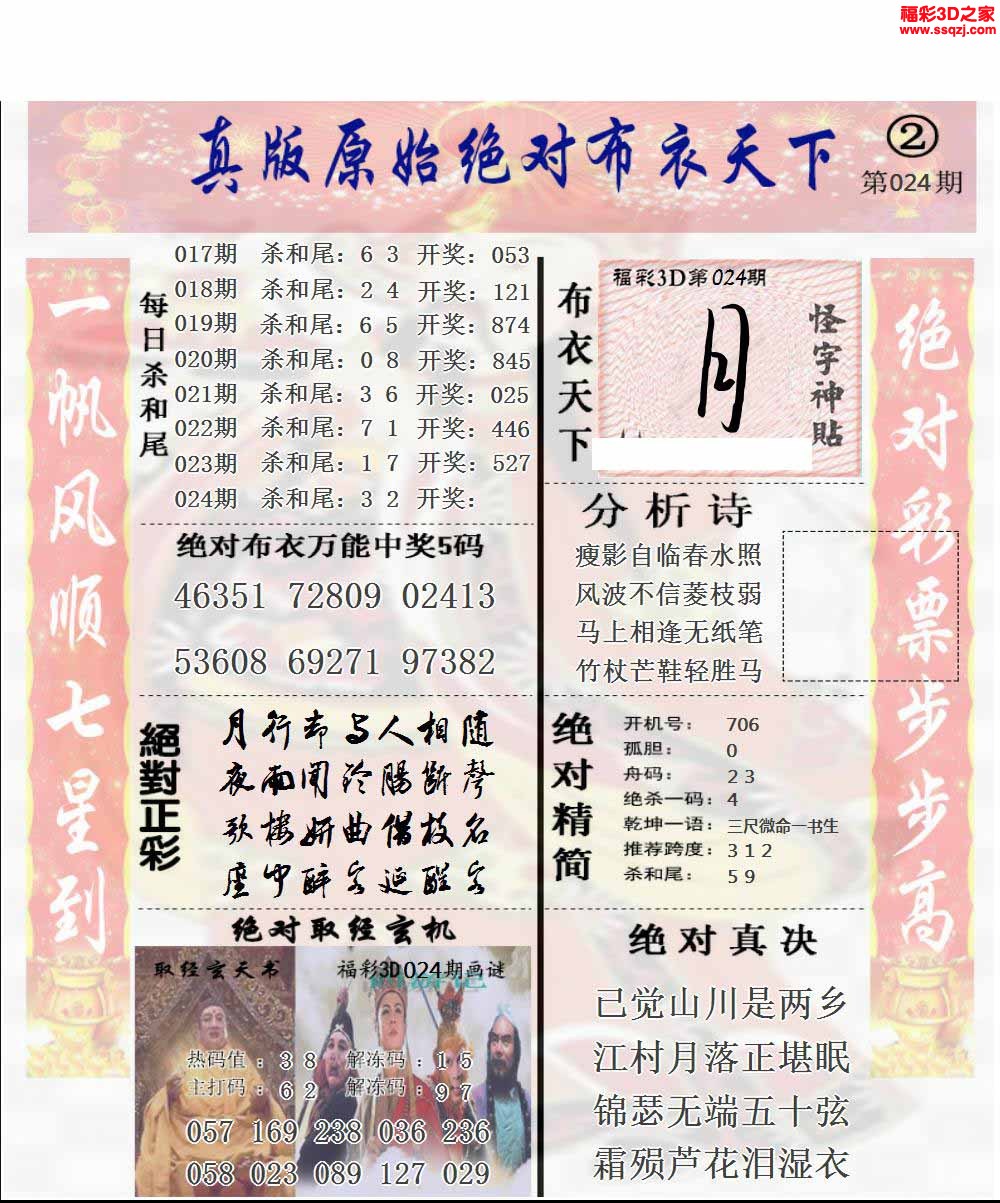 福彩3D之家
www.ssqzj.com
真版原始绝对布衣天下
②
第024期
一帆风顺七星到
每日杀和尾
017期 杀和尾：6 3 开奖：053
018期 杀和尾：2 4 开奖：121
019期 杀和尾：6 5 开奖：874
020期 杀和尾：0 8 开奖：845
021期 杀和尾：3 6 开奖：025
022期 杀和尾：7 1 开奖：446
023期 杀和尾：1 7 开奖：527
024期 杀和尾：3 2 开奖：
绝对布衣万能中奖5码
46351 72809 02413
53608 69271 97382
絕對正彩
月行却与人相随
夜雨闻铃肠断声
歌楼妍曲借枝名
座中醉客延醒客
绝对取经玄机
取经玄天书
福彩3D024期画谜
热码值：3 8 解冻码：1 5
主打码：6 2 解冻码：9 7
057 169 238 036 236
058 023 089 127 029
布衣天下
福彩3D第024期
月
怪字神贴
分析诗
瘦影自临春水照
风波不信菱枝弱
马上相逢无纸笔
竹杖芒鞋轻胜马
绝对精简
开机号： 706
孤胆： 0
舟码： 2 3
绝杀一码：4
乾坤一语：三尺微命一书生
推荐跨度：3 1 2
杀和尾： 5 9
绝对真决
已觉山川是两乡
江村月落正堪眠
锦瑟无端五十弦
霜殒芦花泪湿衣
绝对彩票步步高